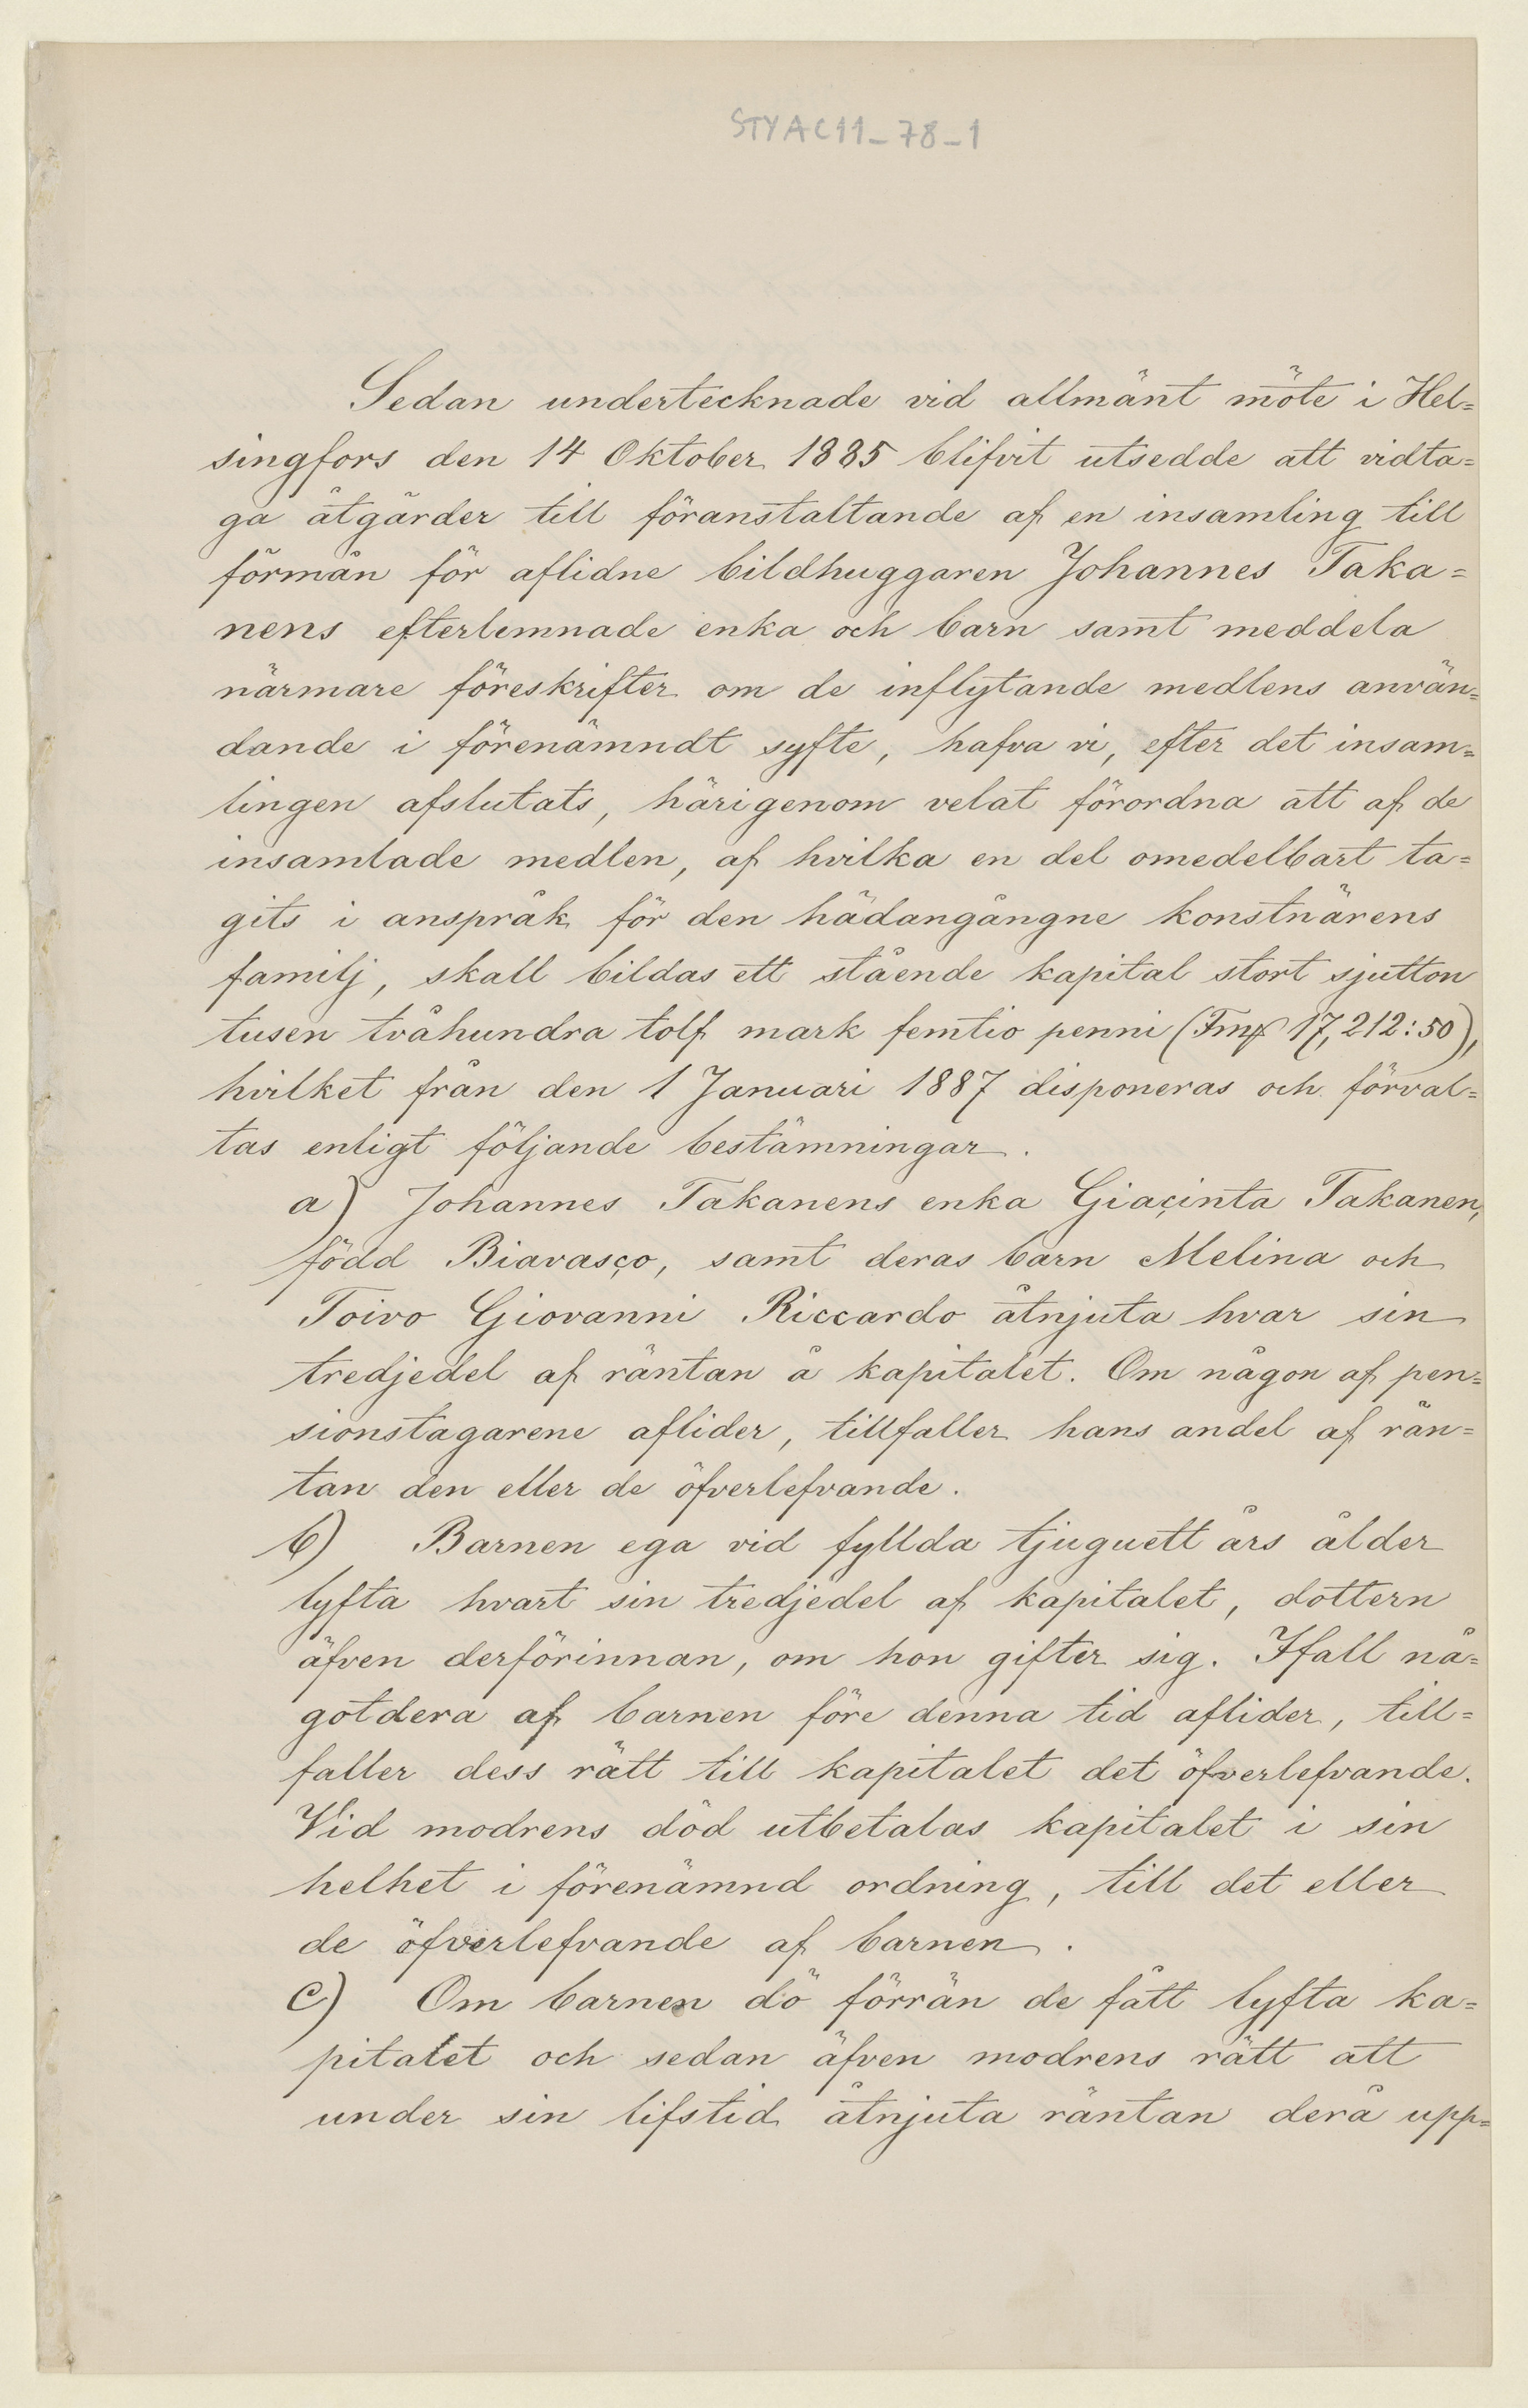 STYAC11_78_1
Sedan undertecknade vid allmänt möte i Hel=
singfors den 14 Oktober 1885 blifvit utsedde att vidta=
ga åtgärder till föranstaltande af en insamling till
förmån för aflidne bildhuggaren Johannes Taka=
nens efterlemnade enka och barn samt meddela
närmare föreskrifter om de inflytande medlens använ=
dande i förenämndt syfte, hafva vi, efter det insam=
lingen afslutats, härigenom velat förordna att af de
insamlade medlen, af hvilka en del omedelbart ta=
gits i anspråk för den hädangångne konstnärens
familj, skall bildas ett stående kapital stort sjutton
tusen tvåhundra tolf mark femtio penni (Fmk 17,212:50),
hvilket från den 1 Januari 1887 disponeras och förval=
tas enligt följande bestämningar.
a) Johannes Takanens enka Giaçinta Takanen,
född Biavasço, samt deras barn Melina och
Toivo Giovanni Riccardo åtnjuta hvar sin
tredjedel af räntan å kapitalet. Om någon af pen=
sionstagarene aflider, tillfaller hans andel af rän=
tan den eller de öfverlefvande.
b) Barnen ega vid fyllda tjuguett års ålder
lyfta hvart sin tredjedel af kapitalet, dottern
äfven derförinnan, om hon gifter sig. Ifall nå=
gotdera af barnen före denna tid aflider, till=
faller dess rätt till kapitalet det öfverlefvande.
Vid modrens död utbetalas kapitalet i sin
helhet i förenämnd ordning, till det eller
de öfverlefvande af barnen.
c) Om barnen dö förrän de fått lyfta ka=
pitalet och sedan äfven modrens rätt att
under sin lifstid åtnjuta räntan derå upp=